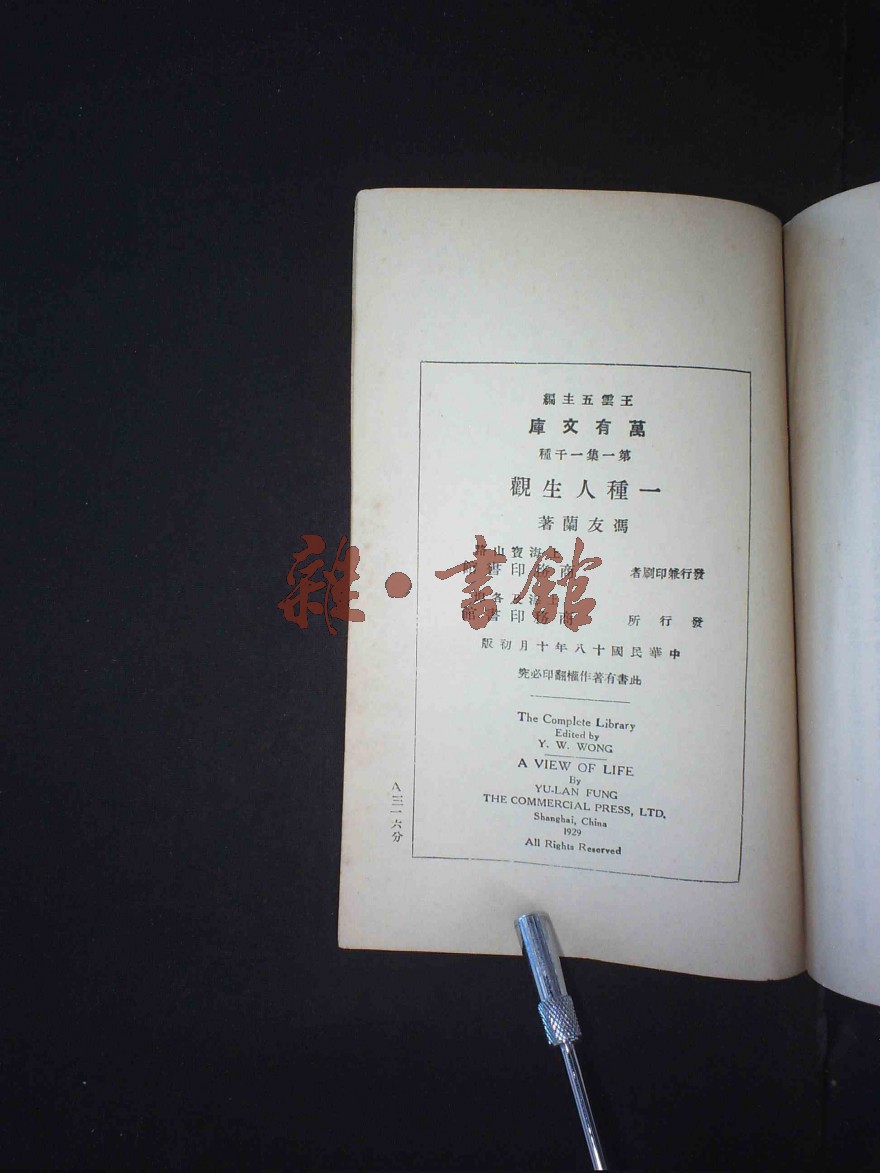 王雲五主編
萬有文庫
第一集一千種
一種人生觀
馮友蘭著
上海寶山路
發行兼印刷者 商務印書館
上海及各埠
發行所 商務印書館
中華民國十八年十月初版
此書有著作權翻印必究
The Complete Library
Edited by
Y. W. WONG
A VIEW OF LIFE
By
YU-LAN FUNG
THE COMMERCIAL PRESS, LTD.
Shanghai, China
1929
All Rights Reserved
A三一六分
雜·書館